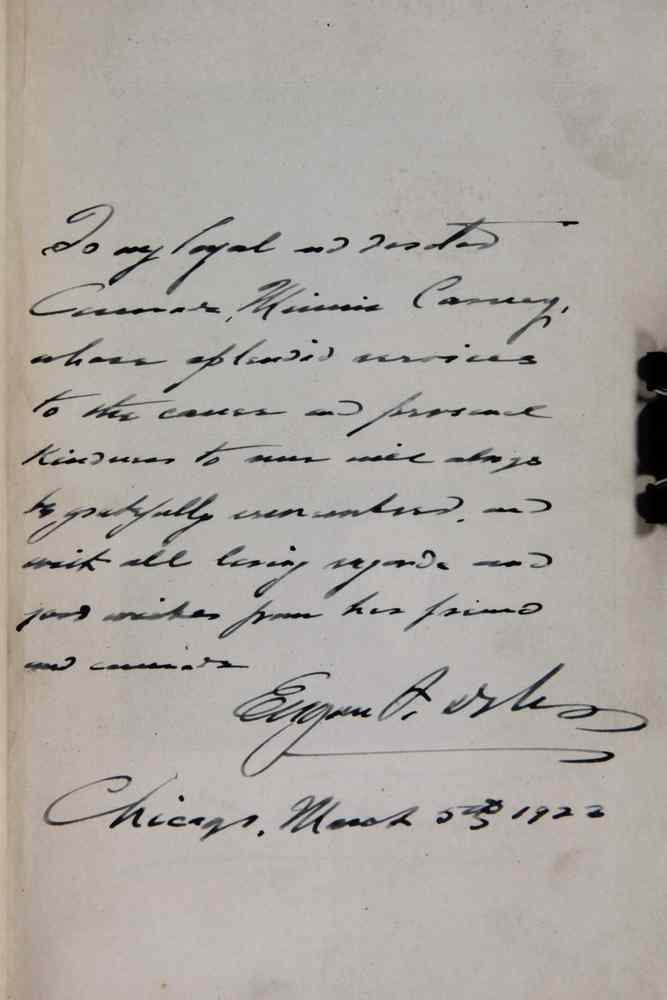 To my loyal and devoted
Comrade, Minnie Carney,
whose splendid services
to the cause and personal
kindness to me will always
be gratefully remembered, and
with all loving regards and
good wishes from her friend
and comrade
Eugene V. Debs
Chicago, March 5th 1923